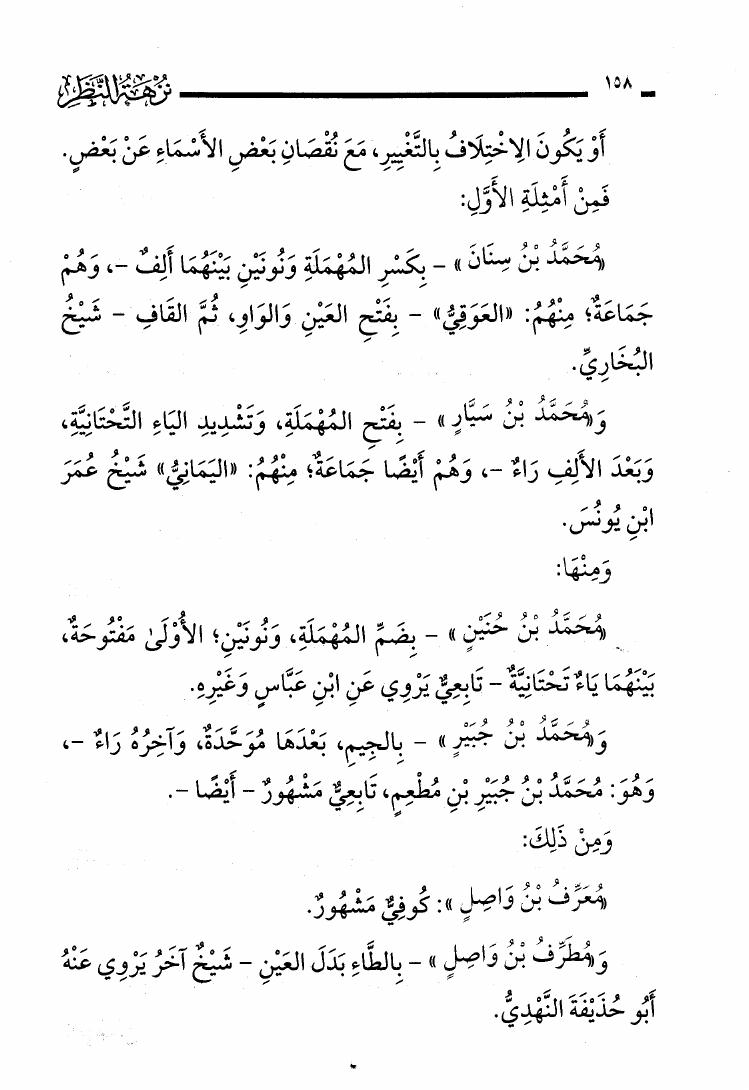 ١٥٨ نُزْهَةُ النَّظَرِ
أَوْ يَكُونَ الِاخْتِلَافُ بِالتَّغْيِيرِ، مَعَ نُقْصَانِ بَعْضِ الأَسْمَاءِ عَنْ بَعْضٍ.
فَمِنْ أَمْثِلَةِ الأَوَّلِ:
«مُحَمَّدُ بْنُ سِنَانَ» – بِكَسْرِ المُهْمَلَةِ وَنُونَيْنِ بَيْنَهُمَا أَلِفٌ –، وَهُمْ
جَمَاعَةٌ؛ مِنْهُمُ: «العَوَقِيُّ» – بِفَتْحِ العَيْنِ وَالوَاوِ، ثُمَّ القَافِ – شَيْخُ
البُخَارِيِّ.
وَ«مُحَمَّدُ بْنُ سَيَّارٍ» – بِفَتْحِ المُهْمَلَةِ، وَتَشْدِيدِ اليَاءِ التَّحْتَانِيَّةِ،
وَبَعْدَ الأَلِفِ رَاءٌ –، وَهُمْ أَيْضًا جَمَاعَةٌ؛ مِنْهُمُ: «اليَمَانِيُّ» شَيْخُ عُمَرَ
ابْنِ يُونُسَ.
وَمِنْهَا:
«مُحَمَّدُ بْنُ حُنَيْنٍ» – بِضَمِّ المُهْمَلَةِ، وَنُونَيْنِ؛ الأُوْلَىٰ مَفْتُوحَةٌ،
بَيْنَهُمَا يَاءٌ تَحْتَانِيَّةٌ – تَابِعِيٌّ يَرْوِي عَنِ ابْنِ عَبَّاسٍ وَغَيْرِهِ.
وَ«مُحَمَّدُ بْنُ جُبَيْرٍ» – بِالجِيمِ، بَعْدَهَا مُوَحَّدَةٌ، وَآخِرُهُ رَاءٌ –،
وَهُوَ: مُحَمَّدُ بْنُ جُبَيْرِ بْنِ مُطْعِمٍ، تَابِعِيٌّ مَشْهُورٌ – أَيْضًا –.
وَمِنْ ذَلِكَ:
«مُعَرِّفُ بْنُ وَاصِلٍ»: كُوفِيٌّ مَشْهُورٌ.
وَ«مُطَرِّفُ بْنُ وَاصِلٍ» – بِالطَّاءِ بَدَلَ العَيْنِ – شَيْخٌ آخَرُ يَرْوِي عَنْهُ
أَبُو حُذَيْفَةَ النَّهْدِيُّ.